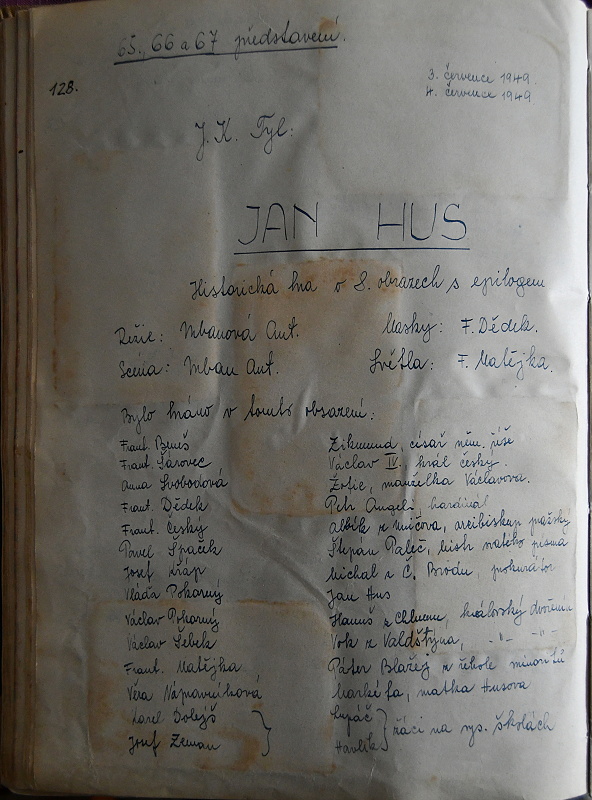 65., 66 a 67 představení.
128.
3. července 1949.
4. července 1949
J. K. Tyl:
JAN HUS
Historická hra o 8. obrazech s epilogem
Režie: Urbanová Ant. Masky: F. Dědek.
Scéna: Urban Ant. Světla: F. Matějka.
Bylo hráno v tomto obsazení:
Frant. Beneš Zikmund, císař něm. říše
Frant. Šárovec Václav IV., král český.
Anna Svobodová Žofie, manželka Václavova.
Frant. Dědek Petr Angeli, kardinál
Frant. Český Albík z Uničova, arcibiskup pražský
Pavel Špaček Štěpán Páleč, mistr svatého písma
Josef Kráp Michal z Č. Brodu, prokurátor
Vláďa Pokorný Jan Hus
Václav Pokorný Hanuš z Chlumu, královský dvořenín
Václav Šebek Vok z Valdštýna, -"- -"-
Frant. Matějka Páter Blažej z řehole minoritů
Věra Nápravníková Markéta, matka Husova
Karel Dolejš Lipáč
Josef Zeman Havlík } žáci na vys. školách